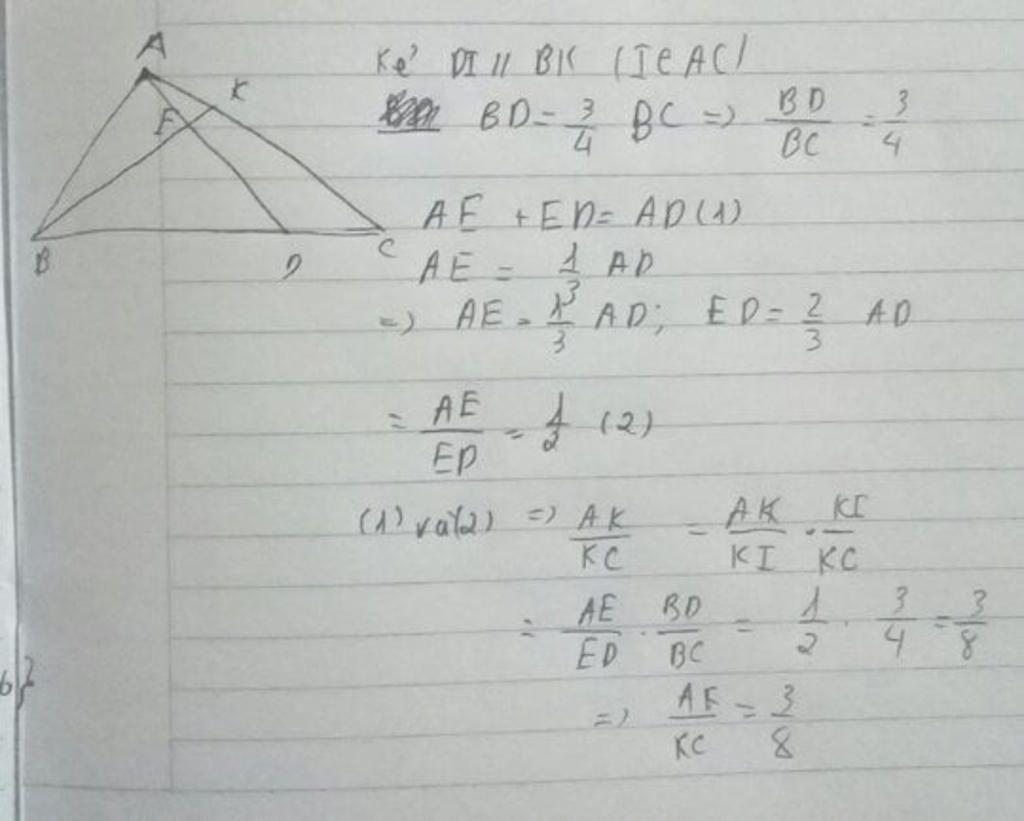 A
K
E
B
D
C
Kẻ DI // BK (I ∈ AC)
BD = 3/4 BC => BD/BC = 3/4
AE + ED = AD (1)
AE = 1/3 AD
=> AE = 1/3 AD; ED = 2/3 AD
= AE/ED = 1/2 (2)
(1) và (2) => AK/KC = AK/KI . KI/KC
= AE/ED . BD/BC = 1/2 . 3/4 = 3/8
=> AK/KC = 3/8